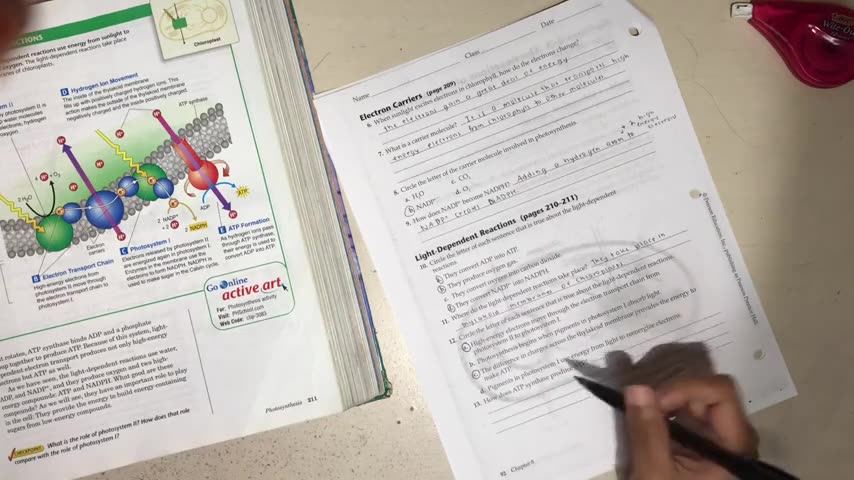 CTIONS
pendent reactions use energy from sunlight to
oxygen. The light-dependent reactions take place
nes of chloroplasts.
Chloroplast
D Hydrogen Ion Movement
The inside of the thylakoid membrane
fills up with positively charged hydrogen ions. This
action makes the outside of the thylakoid membrane
negatively charged and the inside positively charged.
photosystem II is
water molecules
electrons, hydrogen
oxygen.
ATP synthase
H+
4 H+ + O2
2 H2O
2 NADP+
2 NADPH
ADP
ATP
Electron
carriers
B Electron Transport Chain
High-energy electrons from
photosystem II move through
the electron transport chain to
photosystem I.
C Photosystem I
Electrons released by photosystem II
are energized again in photosystem I.
Enzymes in the membrane use the
electrons to form NADPH. NADPH is
used to make sugar in the Calvin cycle.
E ATP Formation
As hydrogen ions pass
through ATP synthase,
their energy is used to
convert ADP into ATP.
Go Online
active art
For: Photosynthesis activity
Visit: PHSchool.com
Web Code: cbp-3083
t rotates, ATP synthase binds ADP and a phosphate
up together to produce ATP. Because of this system, light-
dependent electron transport produces not only high-energy
electrons but ATP as well.
As we have seen, the light-dependent reactions use water,
ADP, and NADP+, and they produce oxygen and two high-
energy compounds: ATP and NADPH. What good are these
compounds? As we will see, they have an important role to play
in the cell: They provide the energy to build energy-containing
sugars from low-energy compounds.
CHECKPOINT What is the role of photosystem II? How does that role
compare with the role of photosystem I?
Photosynthesis 211
Name
Class
Date
Electron Carriers (page 209)
6. When sunlight excites electrons in chlorophyll, how do the electrons change?
The electrons gain a great deal of energy
7. What is a carrier molecule? It is a molecule that transports high
energy electrons from chlorophyll to other molecules
8. Circle the letter of the carrier molecule involved in photosynthesis.
a. H2O c. CO2
b. NADP+ d. O2
9. How does NADP+ become NADPH? Adding a hydrogen atom to
NADP+
NADPH
Light-Dependent Reactions (pages 210–211)
10. Circle the letter of each sentence that is true about the light-dependent
reactions.
a. They convert ADP into ATP.
b. They produce oxygen gas.
c. They convert oxygen into carbon dioxide.
d. They convert NADP+ into NADPH.
11. Where do the light-dependent reactions take place? This take place in
thylakoid membrane of chloroplast
12. Circle the letter of each sentence that is true about the light-dependent reactions.
a. High-energy electrons move through the electron transport chain from
photosystem II to photosystem I.
b. Photosynthesis begins when pigments in photosystem I absorb light.
c. The difference in charges across the thylakoid membrane provides the energy to
make ATP.
d. Pigments in photosystem I use energy from light to reenergize electrons.
13. How does ATP synthase produce
92 Chapter 8
© Pearson Education, Inc., publishing as Pearson Prentice Hall.